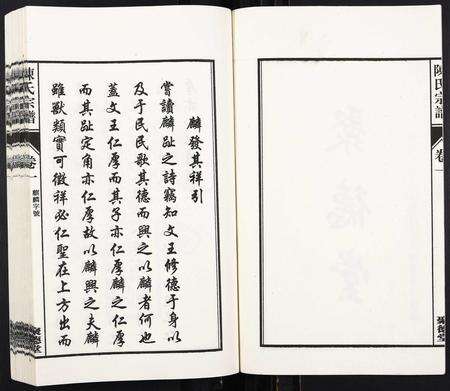 陳氏宗譜
卷一
聚德堂
麟發其祥引
嘗讀麟趾之詩竊知文王修德于身以
及于民民歌其德而興之以麟者何也
蓋文王仁厚而其子亦仁厚麟之仁厚
而其趾定角亦仁厚故以麟興之夫麟
雖獸類實可徵祥必仁聖在上方出而
陳氏宗譜
卷一
麒麟字號
聚德堂